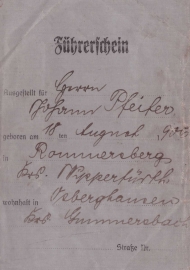 Führerschein
Ausgestellt für Herrn
Johann Pfeifer
geboren am 18 ten August
in Rommersberg
Krs. Wipperfürth
wohnhaft in Oeberghausen
Krs Gummersbach
Straße Nr.